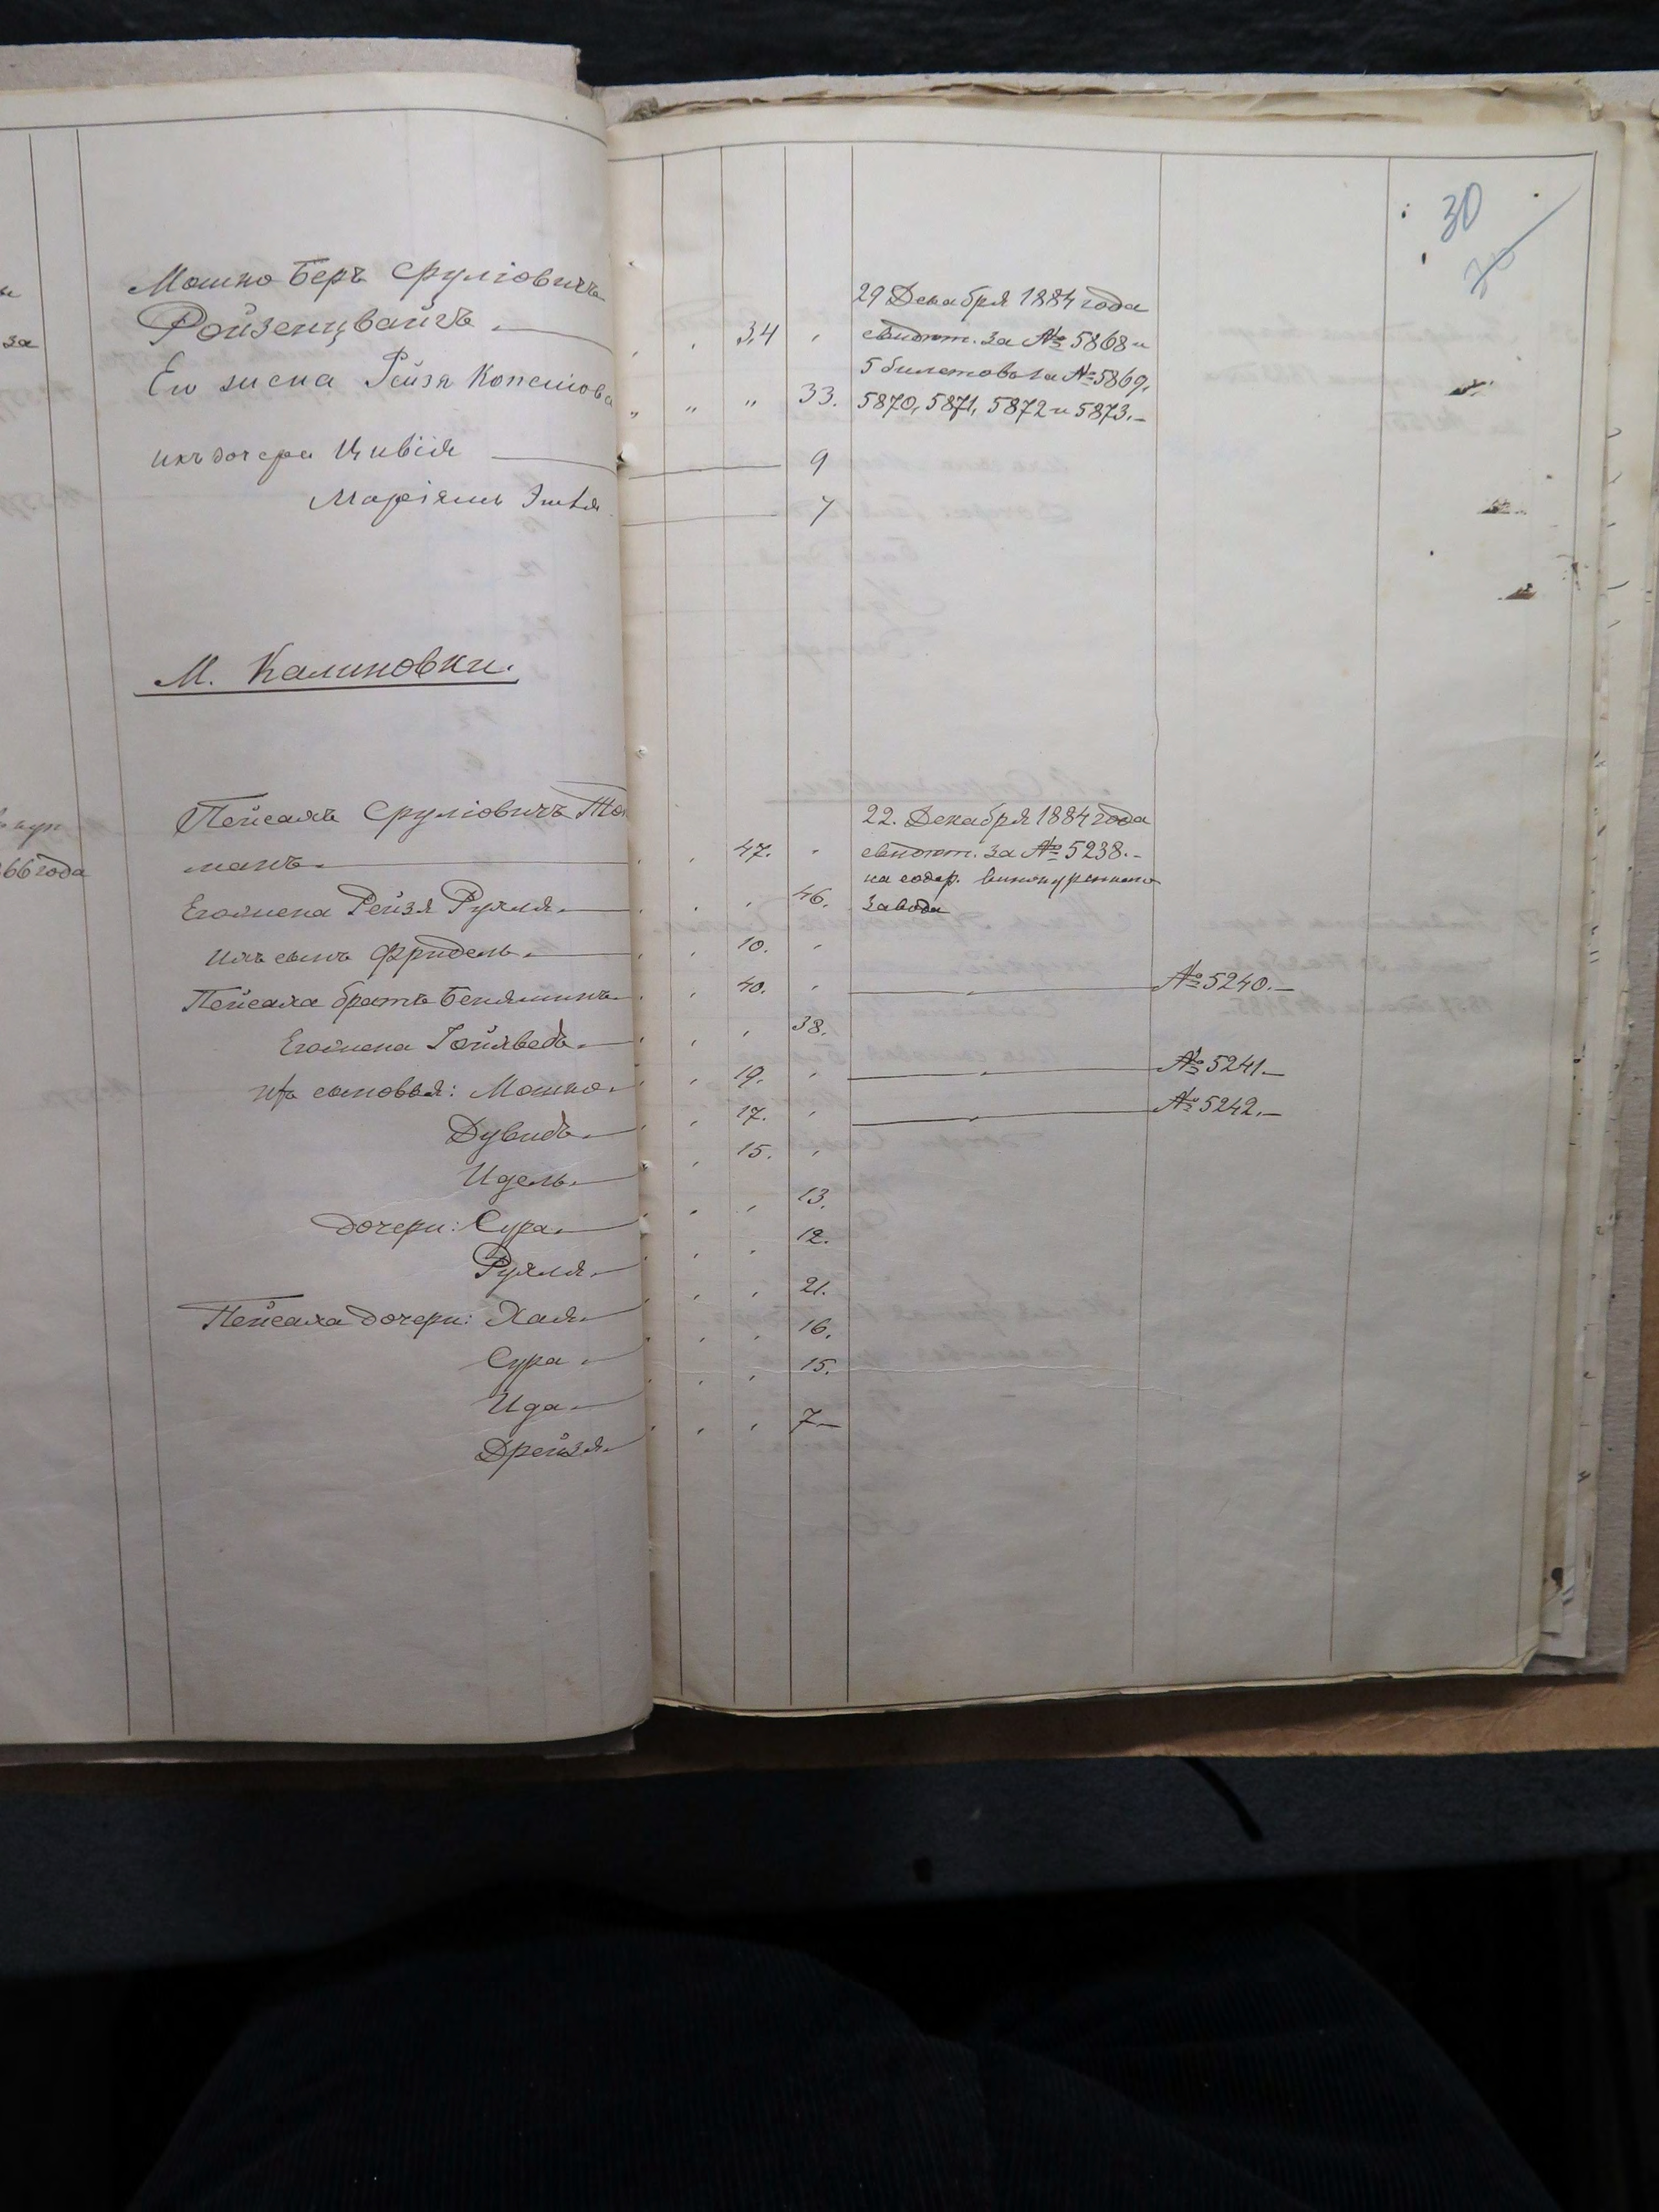 30
за
Мошко Беръ Сруліовичъ
Ройзенцвайгъ
34
29 Декабря 1884 года
свидѣт. за № 5868 и
5 билетовъ за № 5869,
Его жена Рейзя
33.
5870, 5871, 5872 и 5873.
ихъ дочери Цивія
9
Маріямъ
7
М. Калиновки.
Пейсахъ Сруліовичъ
22. Декабря 1884 года
66 года
манъ
47.
свидѣт. за № 5238.
на содер. винокуреннаго
Его жена Рейзя Рухля
46.
завода
Ихъ сынъ Фридель
10.
Пейсаха братъ Беняминъ
40.
№ 5240.
Его жена
38.
ихъ сыновья: Мошко
19.
№ 5241.
Дувидъ
17.
№ 5242.
Идель
15.
дочери: Сура
13.
Рухля
12.
Пейсаха дочери: Хая
21.
Сура
16.
Ида
15.
Дрейзя
7